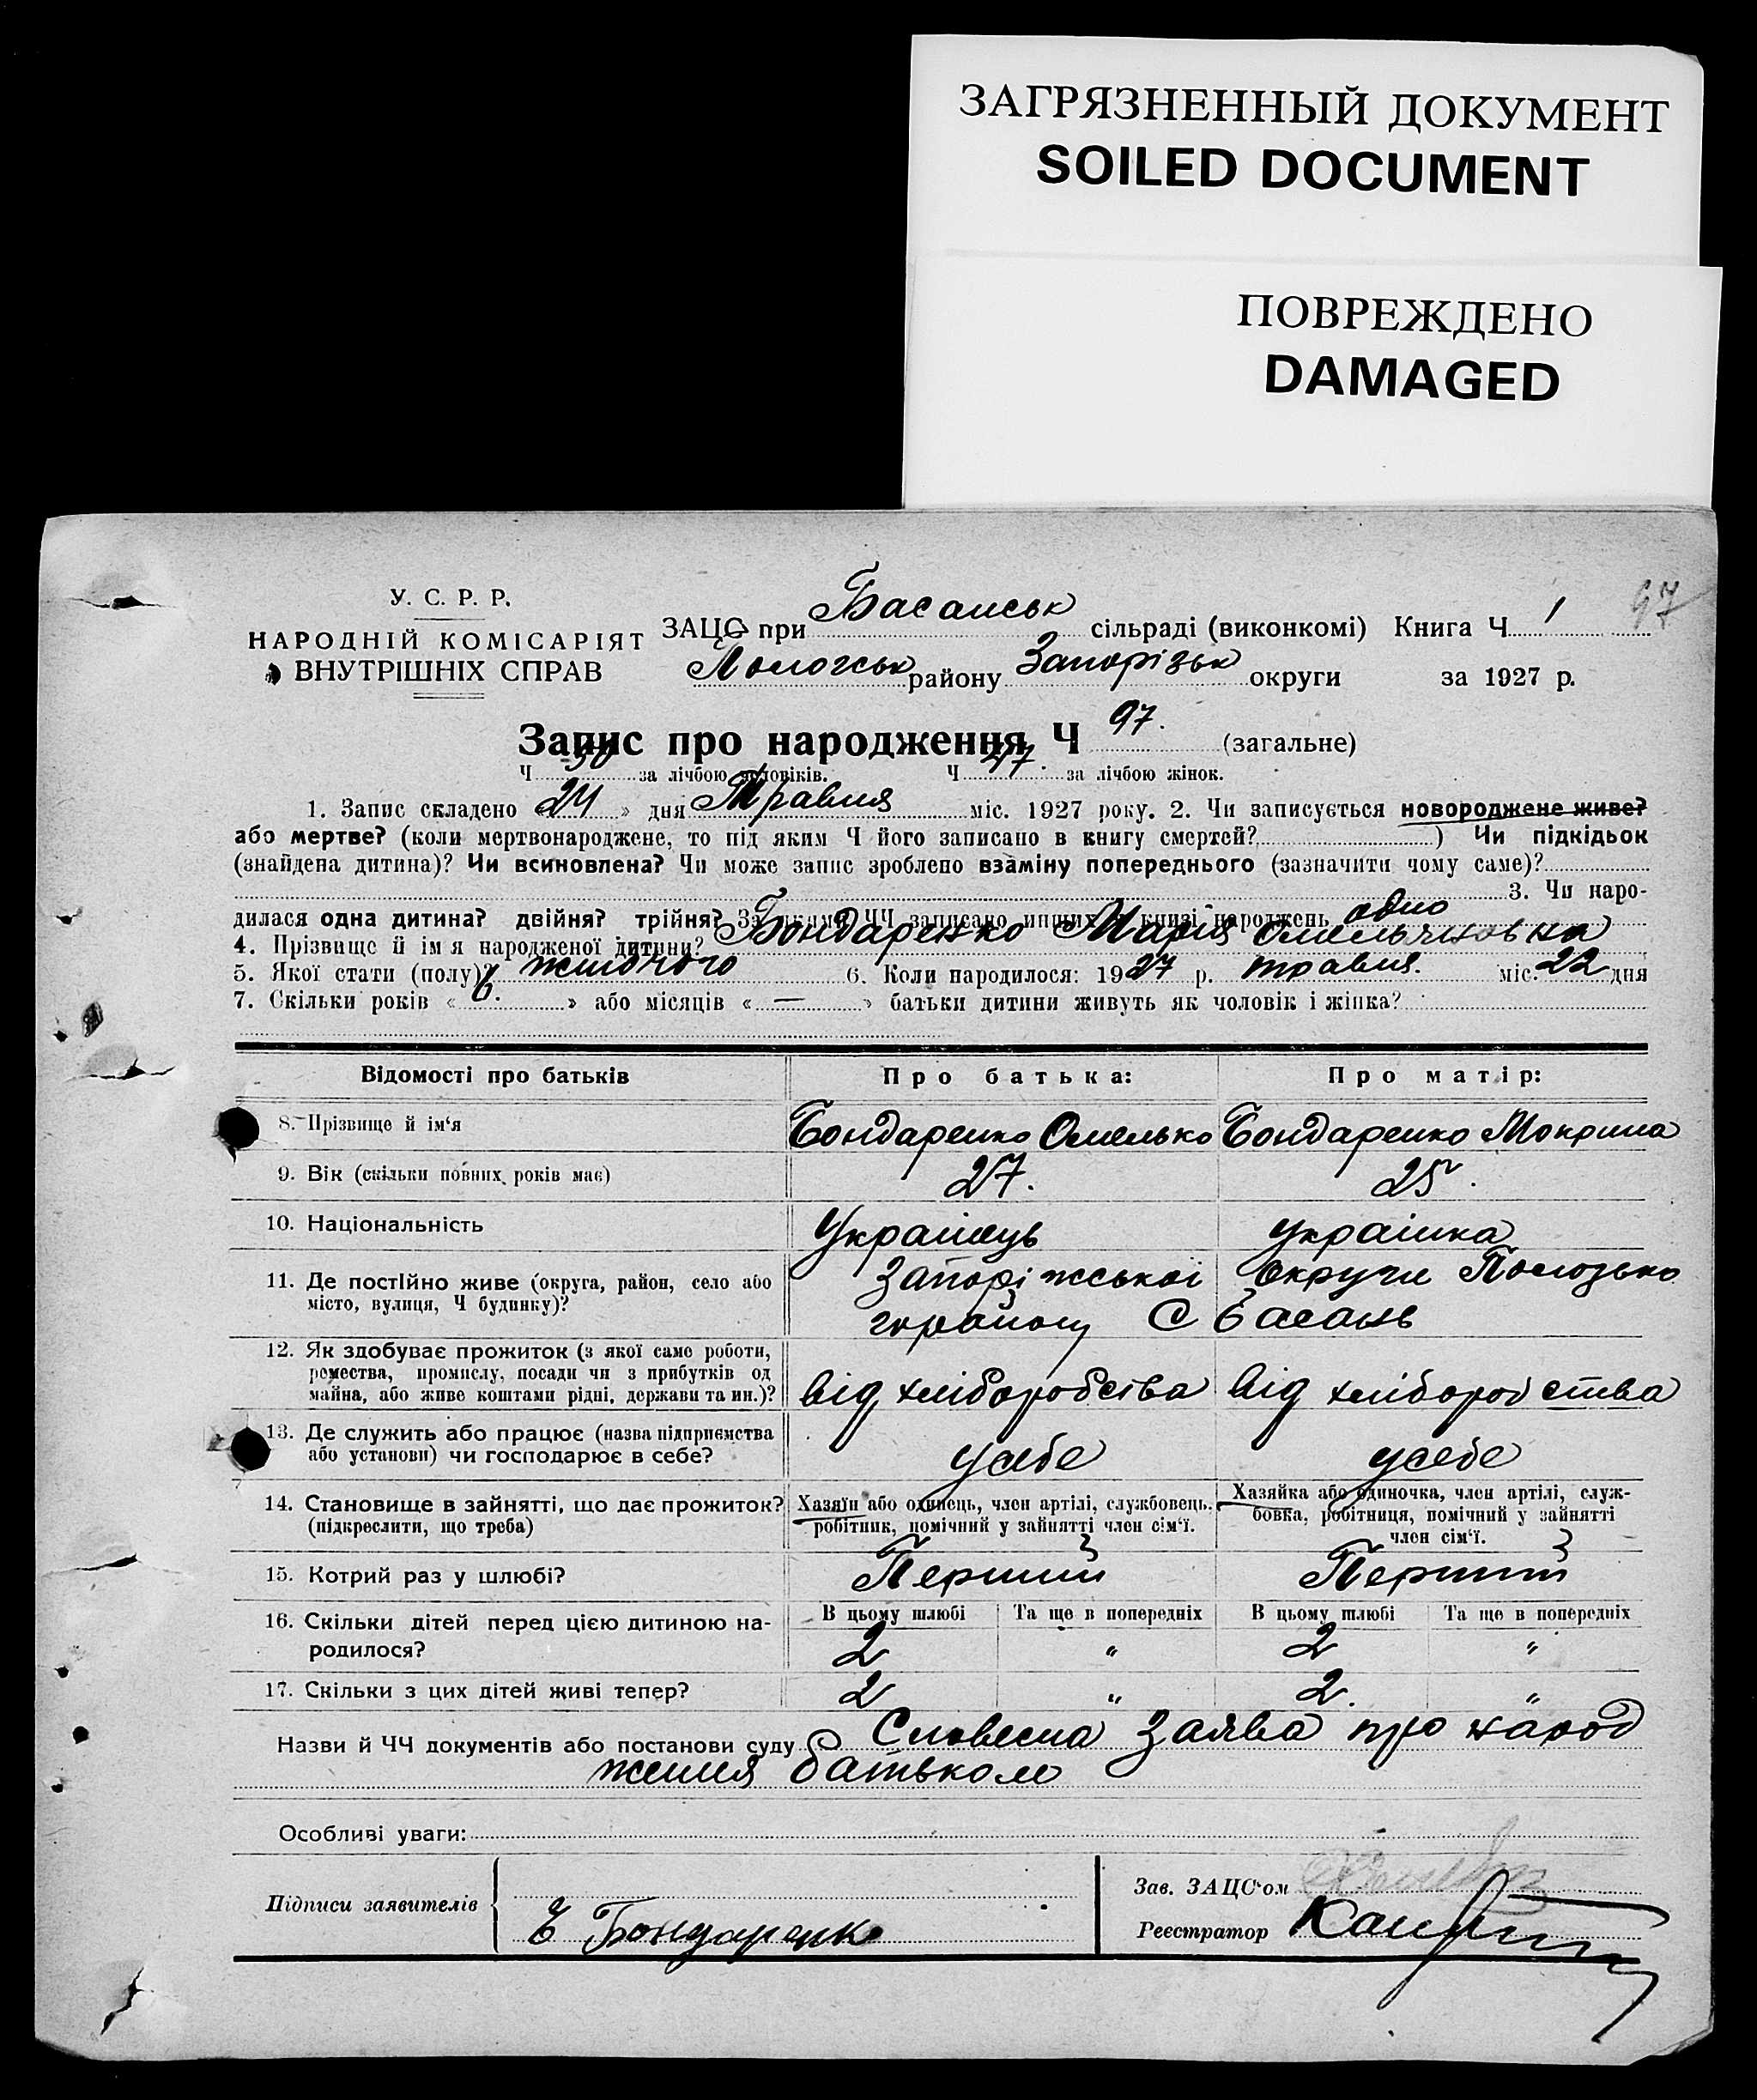 ЗАГРЯЗНЕННЫЙ ДОКУМЕНТ
SOILED DOCUMENT
ПОВРЕЖДЕНО
DAMAGED
У. С. Р. Р.
НАРОДНІЙ КОМІСАРІЯТ
ВНУТРІШНІХ СПРАВ
ЗАЦС при Басанськ сільраді (виконкомі) Книга Ч 1 97
Пологськ району Запорізьк округи за 1927 р.
Запис про народження Ч 97. (загальне)
Ч 50 за лічбою чоловіків. Ч 47. за лічбою жінок.
1. Запис складено « 24 » дня Травня міс. 1927 року. 2. Чи записується новороджене живе?
або мертве? (коли мертвонароджене, то під яким Ч його записано в книгу смертей? ) Чи підкідьок
(знайдена дитина)? Чи всиновлена? Чи може запис зроблено взаміну попереднього (зазначити чому саме)?
3. Чи наро-
дилася одна дитина? двійня? трійня? За якими ЧЧ записано инших в книзі народжень одно
4. Прізвище й ім я народженої дитини? Бондаренко Марія Омельяновна
5. Якої стати (полу)? жиночого 6. Коли народилося: 1927 р. травня. міс. 22 дня
7. Скільки років « 6. » або місяців « — » батьки дитини живуть як чоловік і жінка?
Відомості про батьків Про батька: Про матір:
8. Прізвище й ім'я Бондаренко Омелько Бондаренко Мокрина
9. Вік (скільки повних років має) 27. 25.
10. Національність Українець українка
11. Де постійно живе (округа, район, село або Запоріжської округи Пологзько
місто, вулиця, Ч будинку)? го району С Басань
12. Як здобуває прожиток (з якої саме роботи,
ремества, промислу, посади чи з прибутків од
майна, або живе коштами рідні, держави та ин.)? від хліборобства від хліборобства
13. Де служить або працює (назва підприємства
або установи) чи господарює в себе? усебе усебе
14. Становище в зайнятті, що дає прожиток? Хазяїн або одинець, член артілі, службовець, Хазяйка або одиночка, член артілі, служ-
(підкреслити, що треба) робітник, помічний у зайнятті член сім'ї. бовка, робітниця, помічний у зайнятті
член сім'ї.
15. Котрий раз у шлюбі? Перший Перший
16. Скільки дітей перед цією дитиною на- В цьому шлюбі Та ще в попередніх В цьому шлюбі Та ще в попередніх
родилося? 2 " 2 "
17. Скільки з цих дітей живі тепер? 2 " 2. "
Назви й ЧЧ документів або постанови суду Словесна Заява про народ
ження батьком
Особливі уваги:
Підписи заявителів Зав. ЗАЦС'ом
Бондаренко Реєстратор